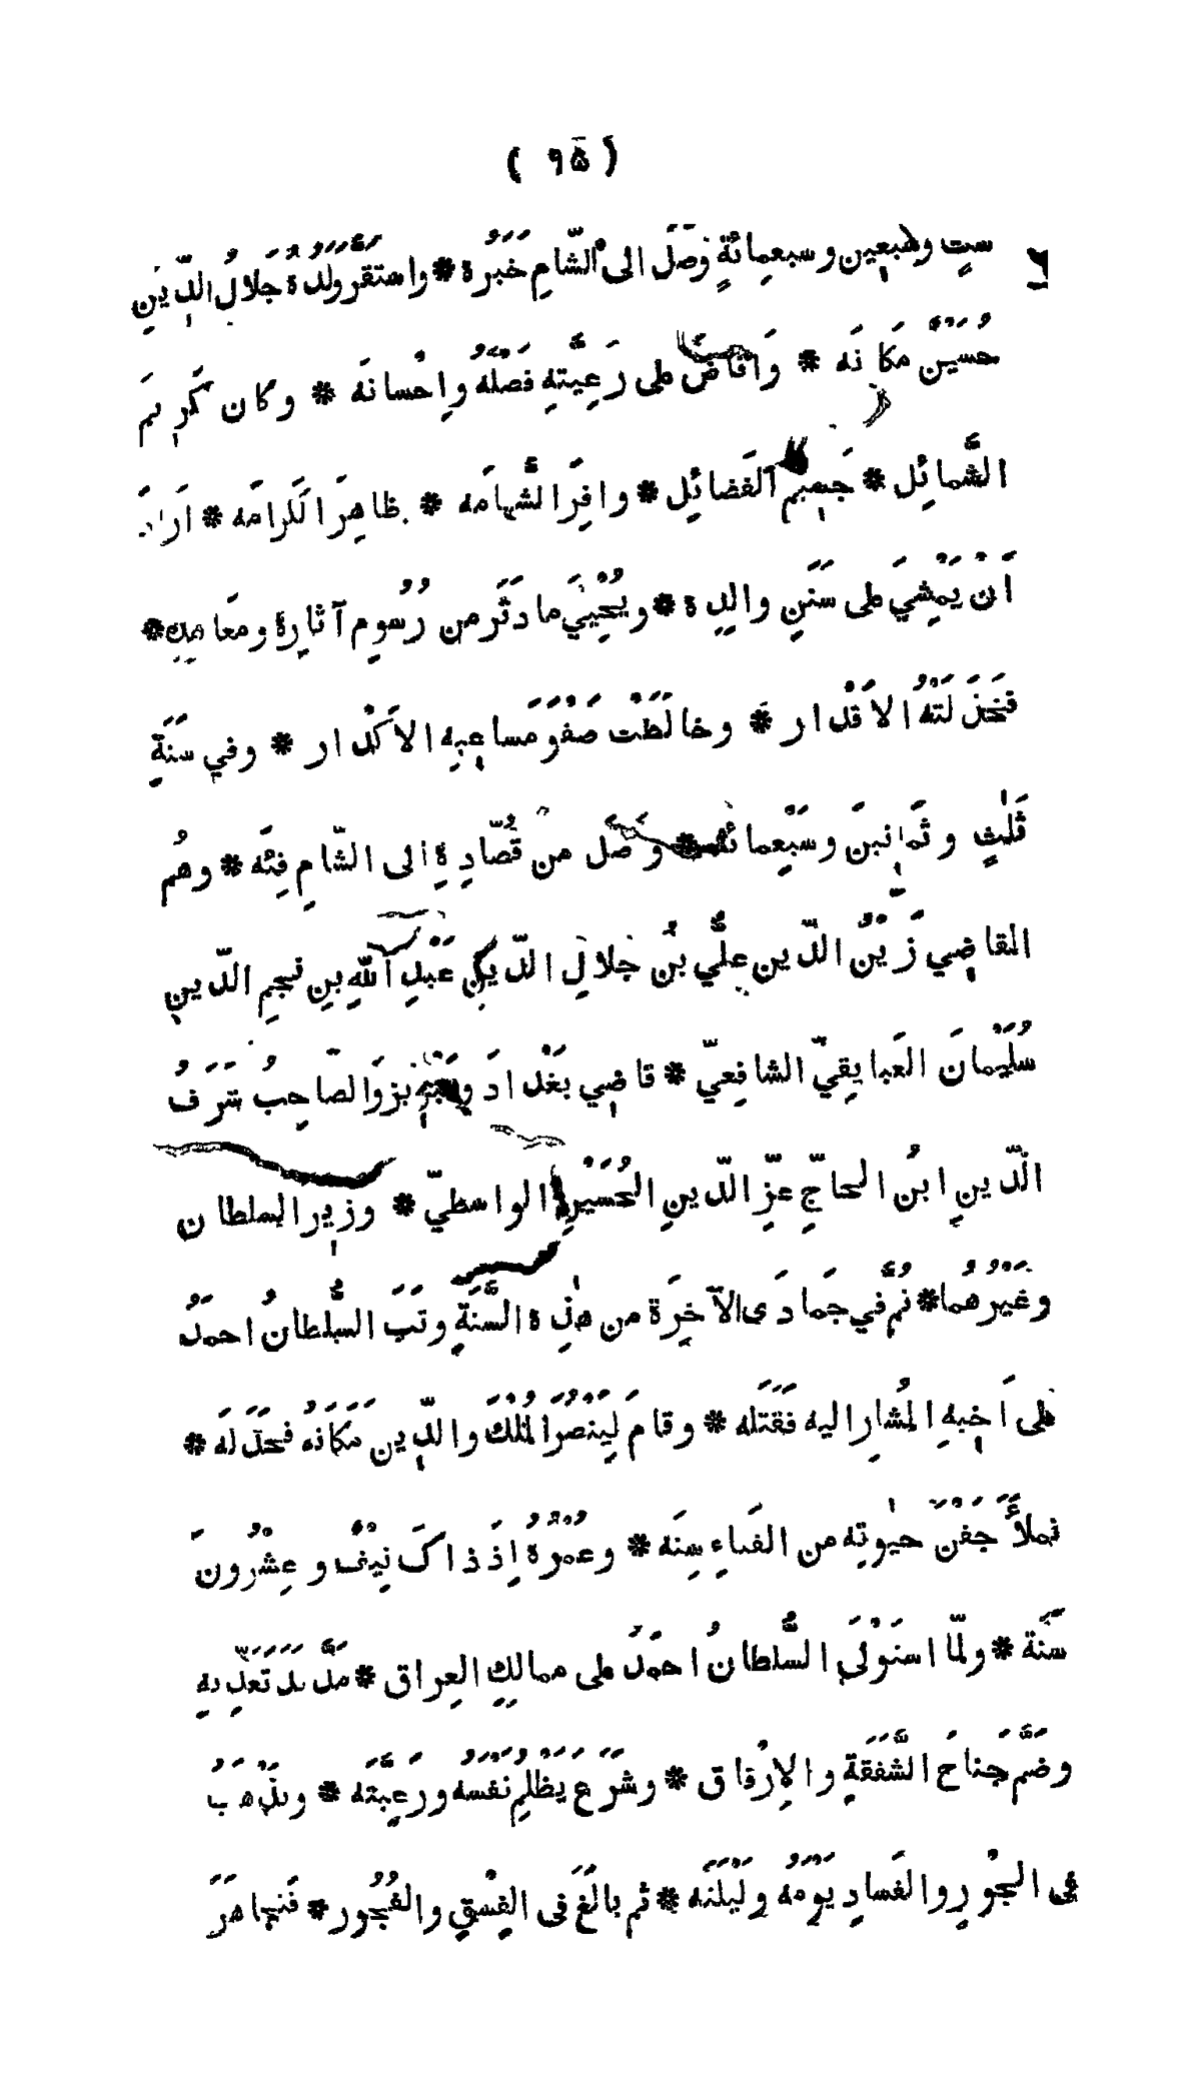 ( ٩٥ )
ستٍ وسَبعِين وسبعمِائةٍ فوَصَلَ الى الشّامِ خَبَرُه * واستَقَرَّ وَلَدُهُ جَلالُ الدّينِ
حُسَيْنٌ مَكَانَه * وَاَفاضَ على رَعِيَّتِهِ فَضلَهُ واِحْسانَه * وكان كَرِيمَ
الشَّمائِل * جَسِيمَ الفَضائِل * وافِرَ الشَّهامَه * ظاهِرَ الكَرامَه * اَرادَ
اَنْ يَمْشِيَ على سَنَنِ والِدِه * ويُحْيِيَ ما دَثَرَ من رُسُومِ آثارِهِ ومَعاهِدِه *
فَخَذَلَتْهُ الاَقْدار * وخالَطَتْ صَفْوَ مَساعِيهِ الاَكْدار * وفي سَنَةِ
ثَلٰثٍ وثَمانِينَ وسَبْعِمائَه * وَصَلَ من قُصّادِهِ الى الشّامِ فِئَه * وهُم
القاضِي زَيْنُ الدّين عليُّ بْنُ جَلالِ الدّينِ عَبْدِ اللّٰهِ بنِ نجمِ الدّينِ
سُلَيْمانَ العَبايِقِيّ الشافِعيّ * قاضِي بَغْدادَ وتَبْرِيزَ والصّاحِبُ شَرَفُ
الدّينِ ابنُ الحاجِّ عِزِّ الدّينِ الحُسَيْنِ الواسطيّ * وزيرُ السلطان
وغَيْرُهُما * ثُمَّ في جَمادَى الآخِرَة من هٰذِه السَّنَةِ وثَبَ السُّلطانُ احمَدُ
على اَخِيهِ المُشارِ اليه فقَتَلَه * وقامَ لِيَنْصُرَ المُلْكَ والدّين مَكانَهُ فخَذَلَه *
فملاَءَ جَفْنَ حيٰوتِه من الفَناءِ سِنَه * وعُمرُهُ اِذ ذاكَ نَيِّفٌ وعِشْرُونَ
سَنَة * ولمّا استَوْلَى السُّلطانُ احمَدُ على ممالِكِ العِراق * مَدَّ يَدَ تَعَدِّيهِ
وضَمَّ جَناحَ الشَّفَقَةِ والاِرْفاق * وشَرَعَ يَظْلِمُ نَفْسَهُ ورَعِيَّتَه * ويُذْهِبُ
فى الجْوْرِ والفَسادِ يَوْمَهُ ولَيْلَتَه * ثم بالَغَ فى الفِسْقِ والفُجُور * فتَجاهَرَ